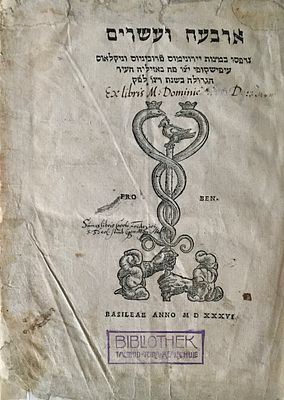 ארבעה ועשרים
נדפסו במצות יירונימוס פרוביניוס וניקלאוס
עפישקופי יצו פה באזיליה העיר
הגדולה בשנת רצו לפק
Ex libris M. Dominic
FRO BEN.
BASILEAE ANNO M D XXXVI
BIBLIOTHEK